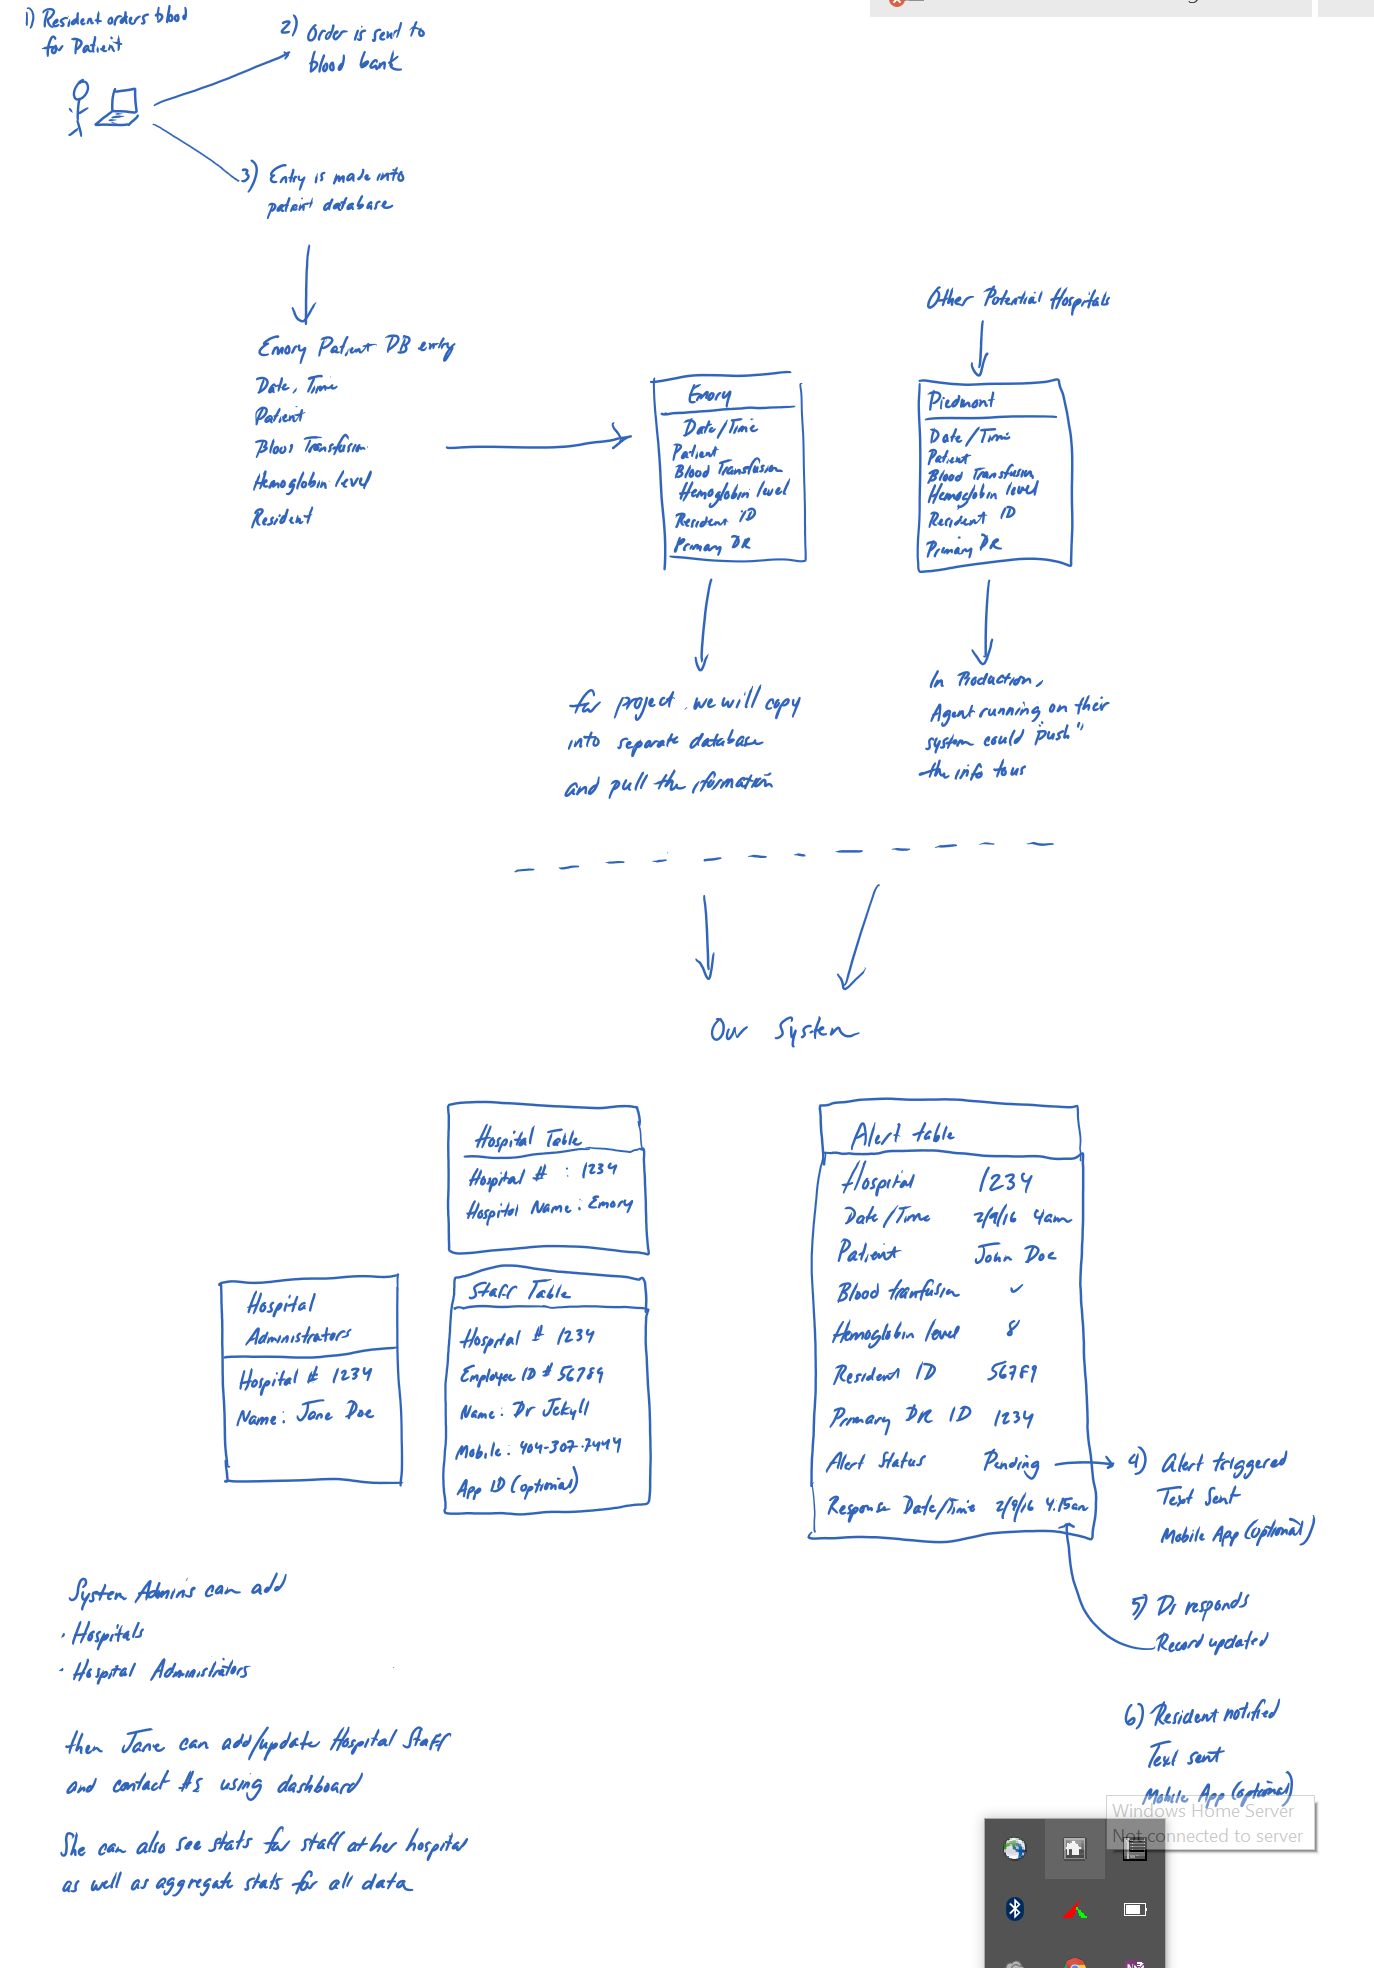 1) Resident orders blood
for Patient
2) Order is sent to
blood bank
3) Entry is made into
patient database
Emory Patient DB entry
Date, Time
Patient
Blood Transfusion
Hemoglobin level
Resident
Emory
Date/Time
Patient
Blood Transfusion
Hemoglobin level
Resident ID
Primary DR
Other Potential Hospitals
Piedmont
Date/Time
Patient
Blood Transfusion
Hemoglobin level
Resident ID
Primary DR
for project, we will copy
into separate database
and pull the iformation
In Production,
Agent running on their
system could "push"
the info to us
Our System
Hospital Table
Hospital # : 1234
Hospital Name: Emory
Hospital
Administrators
Hospital # 1234
Name: Jane Doe
Staff Table
Hospital # 1234
Employee ID # 56789
Name: Dr Jekyll
Mobile: 404-307-7444
App ID (optional)
Alert table
Hospital 1234
Date/Time 2/9/16 4am
Patient John Doe
Blood tranfusion ✓
Hemoglobin level 8
Resident ID 56789
Primary DR ID 1234
Alert Status Pending
Response Date/Time 2/9/16 4.15am
4) Alert triggered
Text Sent
Mobile App (optional)
5) Dr responds
Record updated
6) Resident notified
Text sent
Mobile App (optional)
System Admins can add
· Hospitals
· Hospital Administrators
then Jane can add/update Hospital Staff
and contact #s using dashboard
She can also see stats for staff at her hospital
as well as aggregate stats for all data
Windows Home Server
Not connected to server